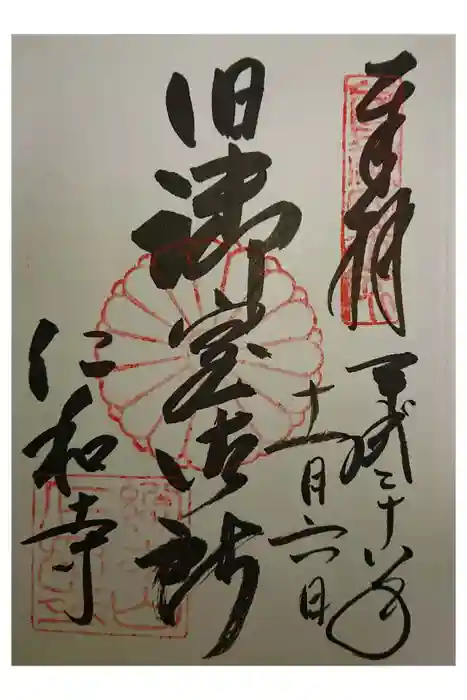 奉拝
平成二十八年
十一月六日
旧御室御所
仁和寺